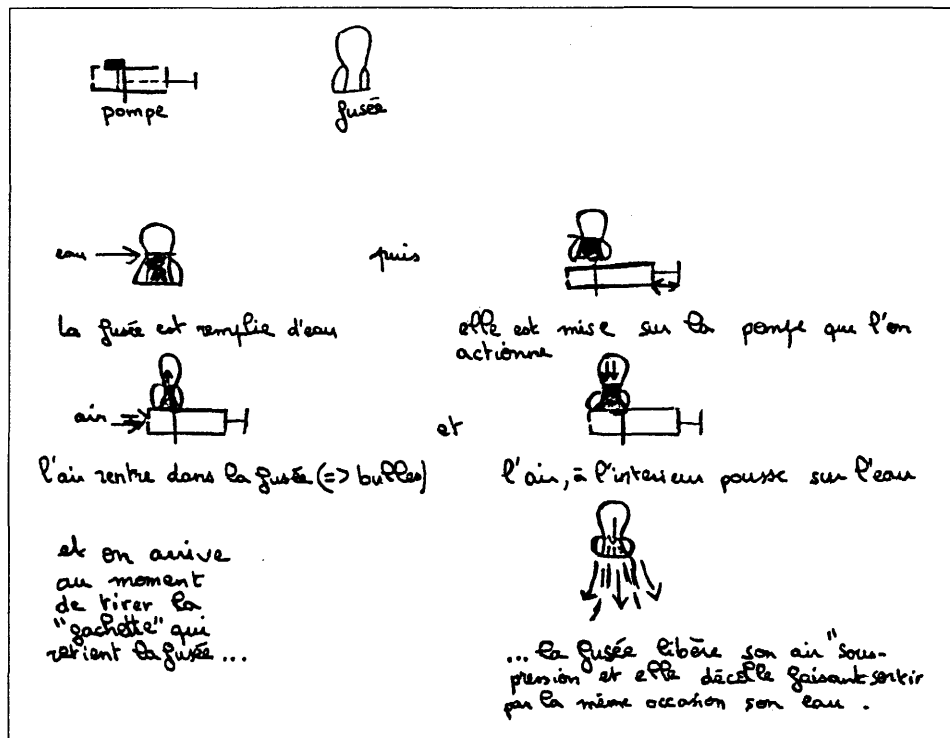 pompe
fusée
eau
puis
la fusée est remplie d'eau
elle est mise sur la pompe que l'on
actionne
air
et
l'air rentre dans la fusée (=> bulles)
l'air, à l'interieur pousse sur l'eau
et on arrive
au moment
de tirer la
"gachette" qui
retient la fusée ...
... la fusée libère son air "sous-
pression et elle décolle faisant sortir
par la même occasion son eau .